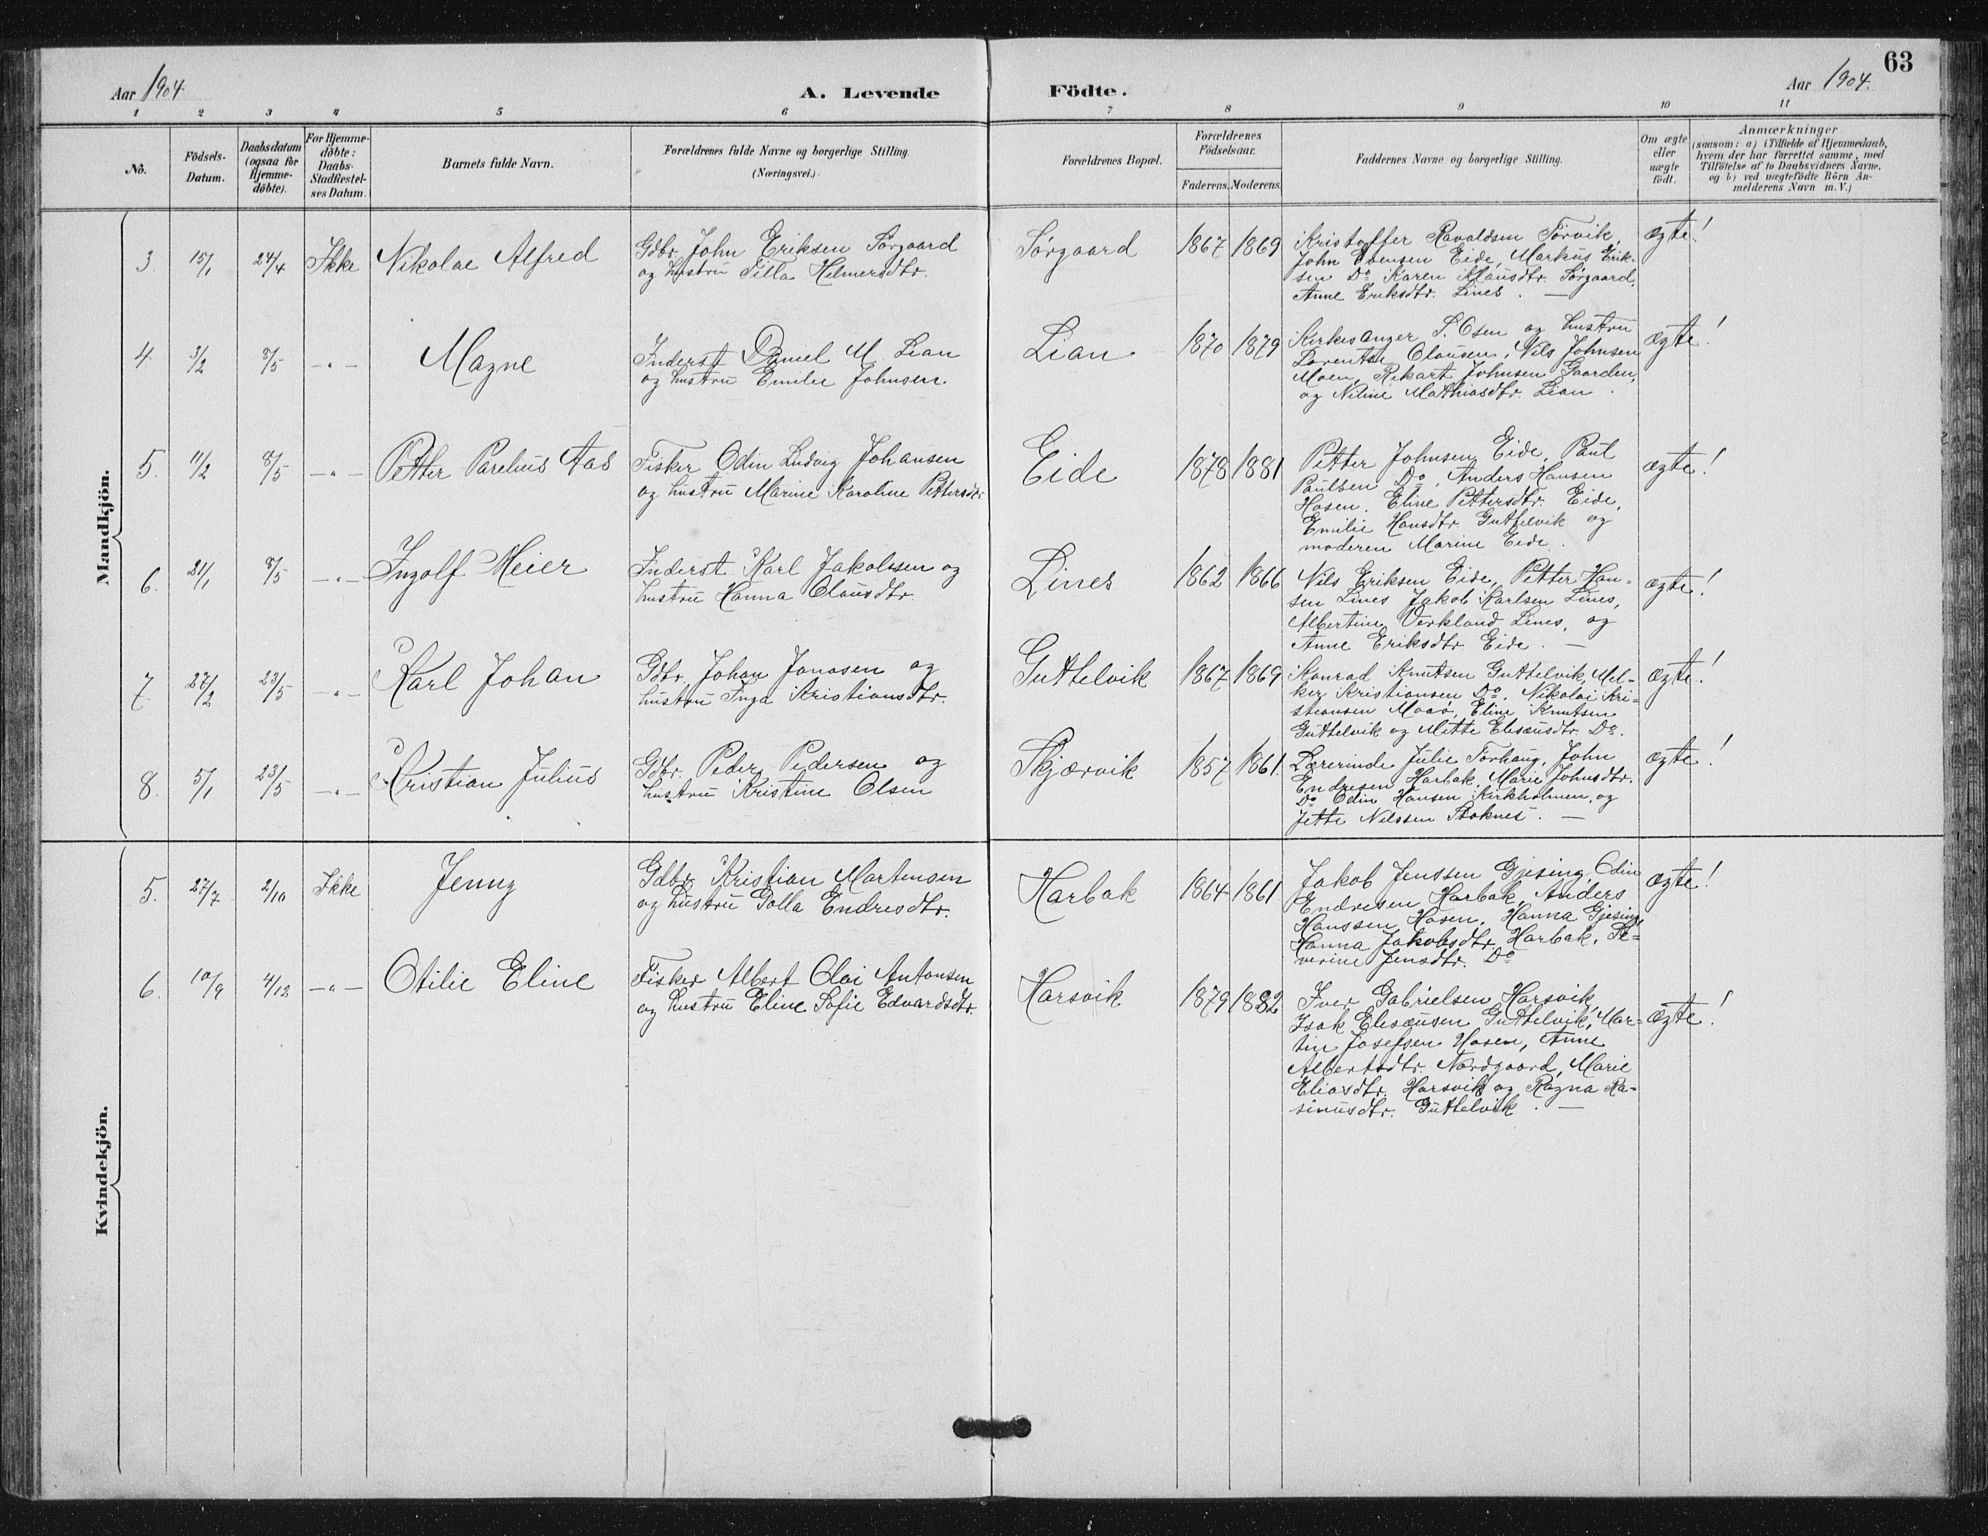 63
Aar 1904. A. Levende Födte. Aar 1904.
1 2 3 4 5 6 7 8 9 10 11
No.
Födsels-
Datum.
Daabsdatum
(ogsaa for
Hjemme-
döbte).
For Hjemme-
döbte:
Daabs-
Stadfæstel-
ses Datum.
Barnets fulde Navn.
Forældrenes fulde Navne og borgerlige Stilling.
(Næringsvei.)
Forældrenes Bopæl.
Forældrenes
Födselsaar.
Faderens. Moderens.
Faddernes Navne og borgerlige Stilling.
Om ægte
eller
uægte
födt.
Anmærkninger
(saasom: a) i Tilfælde af Hjemmedaab,
hvem der har forrettet samme, med
Tilföielse af to Daabsvidners Navne,
og b) ved uægtefödte Börn An-
melderens Navn m. V.)
Mandkjön.
3. 15/1 24/4 Ikke Nikolae Alfred
Gdbr. John Eriksen Sørgaard
og hustru Hilmersdtr.
Sørgaard 1867 1869
Kristoffer Ravaldsen Tørvik,
John Ebensen Eide, Markus Erik-
sen Do. Karen Klausdtr. Sørgaard,
Anne Eriksdtr. Lines. —
ægte!
4. 3/2 8/5 -"- Magne
Inderst Daniel M. Lian
og hustru Emilie Johnsen.
Lian 1870 1879
Kirkesanger P. Osen og hustru
Lorentse Olausen, Nils Johnsen
Moen, Rikart Johnsen Gaarden,
og Neline Mathiasdtr. Lian.
ægte!
5. 11/2 8/5 -"- Petter Parelius Aas
Fisker Odin Ludvig Johansen
og hustru Marine Karoline Pettersdtr.
Eide 1878 1881
Petter Johnsen Eide, Paul
Paulsen Do, Anders Hansen
Hosen, Eline Pettersdtr. Eide,
Emilie Hansdtr. Guttelvik og
moderen Marine Eide.
ægte!
6. 21/1 8/5 -"- Ingolf Meier
Inderst Karl Jakobsen og
hustru Hanna Olausdtr.
Lines 1862 1866
Nils Eriksen Eide, Petter Han-
sen Lines Jakob Karlsen Lines,
Albertine Verkland Lines, og
Anne Eriksdtr. Eide. —
ægte!
7. 27/2 23/5 -"- Karl Johan
Gdbr. Johan Jonasen og
hustru Inga Kristiansdtr.
Guttelvik 1867 1869
Konrad Knutsen Guttelvik, Mel-
ker Kristiansen Do, Nikolai Kri-
stiansen Moaø, Eline Knutsen
Guttelvik og Mette Eliseusdtr. Do.
ægte!
8. 5/1 23/5 -"- Kristian Julius
Gdbr. Peder Pedersen og
hustru Kristine Olsen
Skjærvik 1857 1861.
Lærerinde Julie Torhaug, John
Endresen Harbak, Marie Johnsdtr.
Do Odin Hansen Kirkholmen, og
Jette Nilssen Stoknes. —
ægte!
Kvindekjön.
5. 27/7 2/10 Ikke Jenny
Gdbr. Kristian Martensen
og hustru Golla Endresdtr.
Harbak 1864 1861
Jakob Jenssen Gjesing, Odin
Endresen Harbak, Anders
Hanssen Hosen, Hanna Gjesing,
Hanna Jakobsdtr. Harbak, Se-
verine Jensdtr. Do
ægte!
6. 10/9 4/12 -"- Otilie Eline
Fisker Albert Olai Antonsen
og hustru Eline Sofie Edvardsdtr.
Harsvik 1879 1882
Iver Gabrielsen Harsvik,
Isak Eliseusen Guttelvik, Mar-
tin Josefsen Hosen, Anne
Albertsdtr. Nordgaard, Marie
Eliasdtr. Harsvik og Ragna Ra-
sinusdtr. Guttelvik. —
ægte!